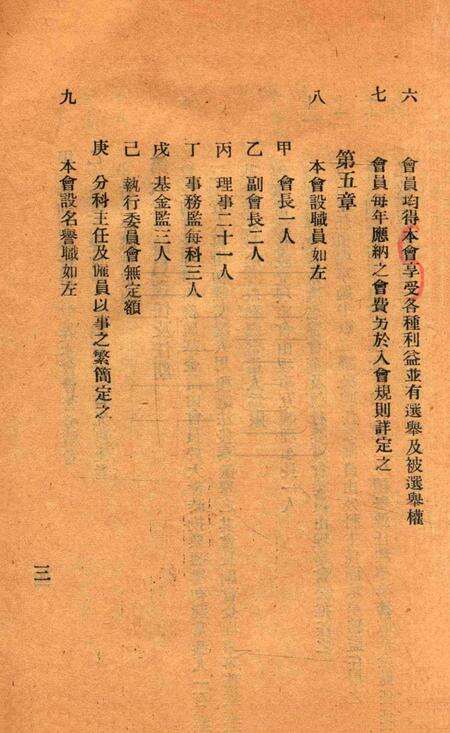 六　會員均得本會享受各種利益並有選舉及被選舉權
七　會員每年應納之會費另於入會規則詳定之
第五章
八　本會設職員如左
甲　會長一人
乙　副會長二人
丙　理事二十一人
丁　事務監每科三人
戊　基金監三人
己　執行委員會無定額
庚　分科主任及僱員以事之繁簡定之
九　本會設名譽職如左
三